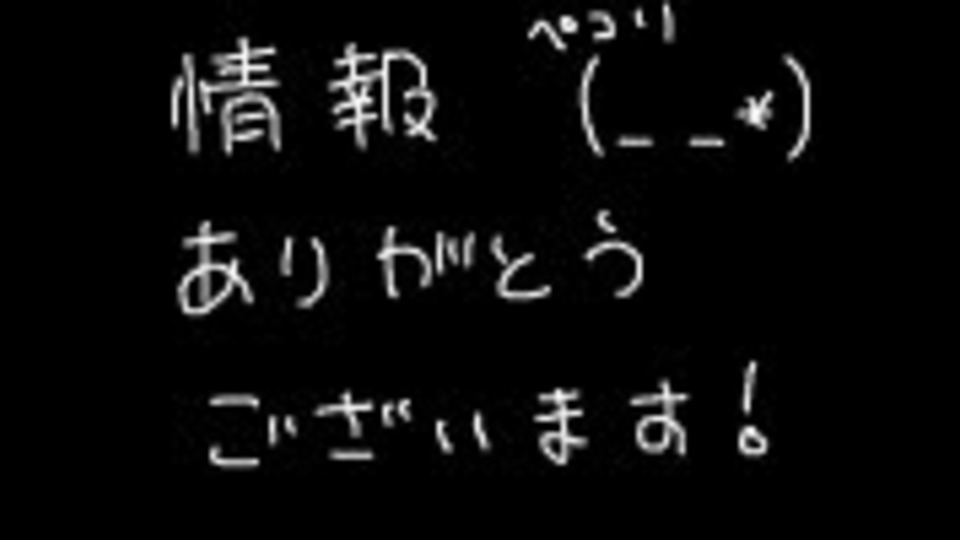 ペコリ
情報 (_ _*)
ありがとう
ございます!